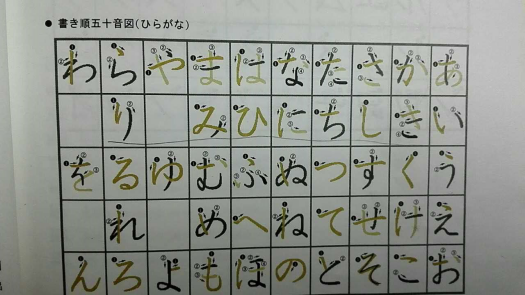 ● 書き順五十音図(ひらがな)
あいうえお
かきくけこ
さしすせそ
たちつてと
なにぬねの
はひふへほ
まみむめも
やゆよ
らりるれろ
わをん